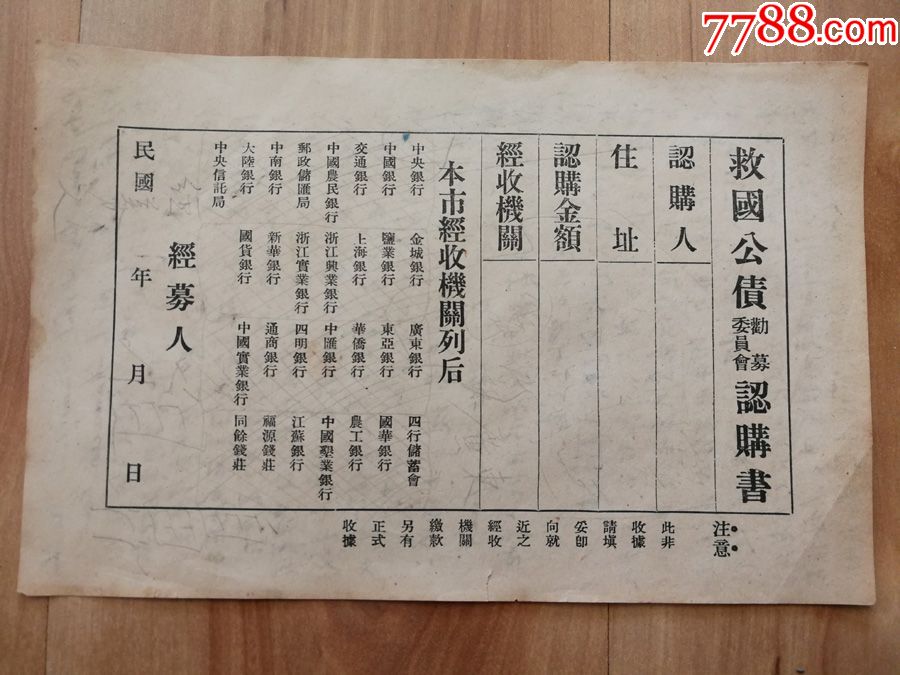 7788.com
救國公債勸募委員會認購書
認購人
住址
認購金額
經收機關
本市經收機關列后
中央銀行 金城銀行 廣東銀行 四行儲蓄會
中國銀行 鹽業銀行 東亞銀行 國華銀行
交通銀行 上海銀行 華僑銀行 農工銀行
中國農民銀行 浙江興業銀行 中匯銀行 中國墾業銀行
郵政儲匯局 浙江實業銀行 四明銀行 江蘇銀行
中南銀行 新華銀行 通商銀行 福源錢莊
大陸銀行 國貨銀行 中國實業銀行 同餘錢莊
中央信託局
經募人
民國 年 月 日
注意
此非
收據
請塡
妥卽
向就
近之
經收
機關
繳款
另有
正式
收據